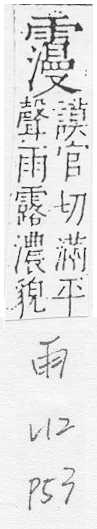 䨬
謨官切滿平
聲雨露濃貌
雨
V12
P53